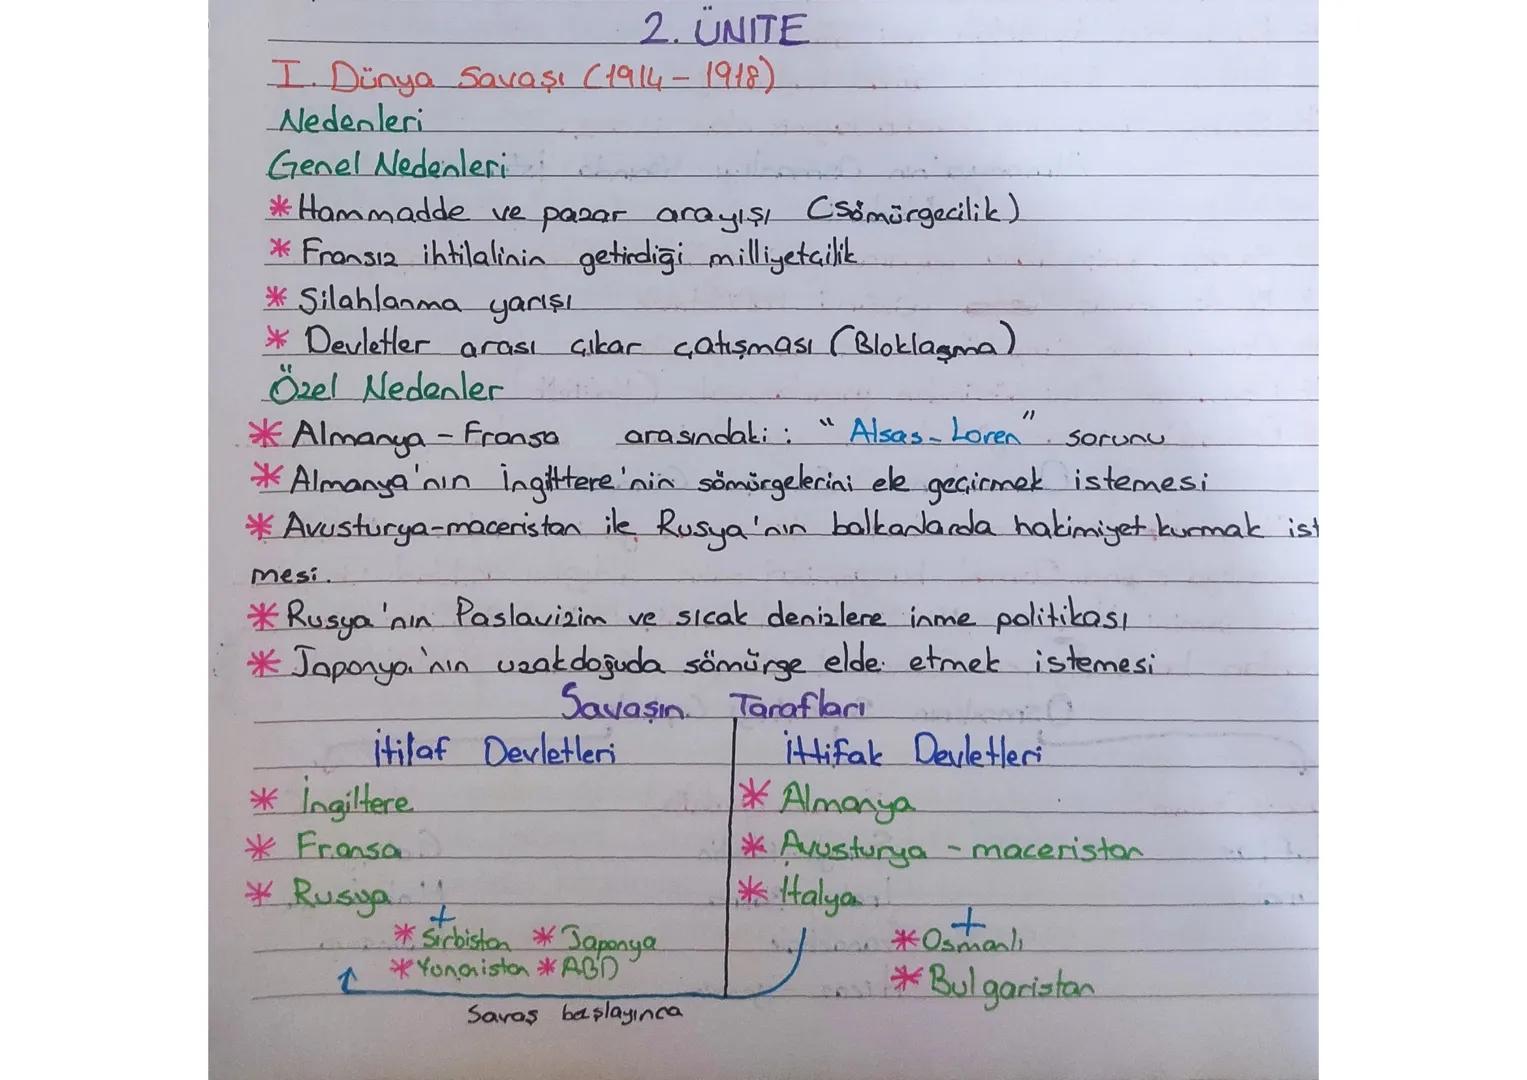 2. ÜNITE
I. Dünya Savaşı (1914 - 1918)
Nedenleri
Genel Nedenleri
* Hammadde ve pazar arayışı (sömürgecilik)
* Fransız ihtilalinin getirdiği milliyetçilik
* Silahlanma yarışı
* Devletler arası çıkar çatışması (Bloklaşma)
Özel Nedenler
* Almanya - Fransa arasındaki : " Alsas - Loren" sorunu
* Almanya'nın İngiltere'nin sömürgelerini ele geçirmek istemesi
* Avusturya-maceristan ile Rusya'nın balkanlarda hakimiyet kurmak ist
mesi.
* Rusya'nın Paslavizim ve sıcak denizlere inme politikası
* Japonya'nın uzakdoğuda sömürge elde etmek istemesi
Savaşın Tarafları
İtilaf Devletleri
* İngiltere
* Fransa
* Rusya
+
* Sırbistan * Japonya
* Yunanistan * ABD
Savaş başlayınca
İttifak Devletleri
* Almanya
* Avusturya - maceristan
* İtalya
+
* Osmanlı
* Bulgaristan